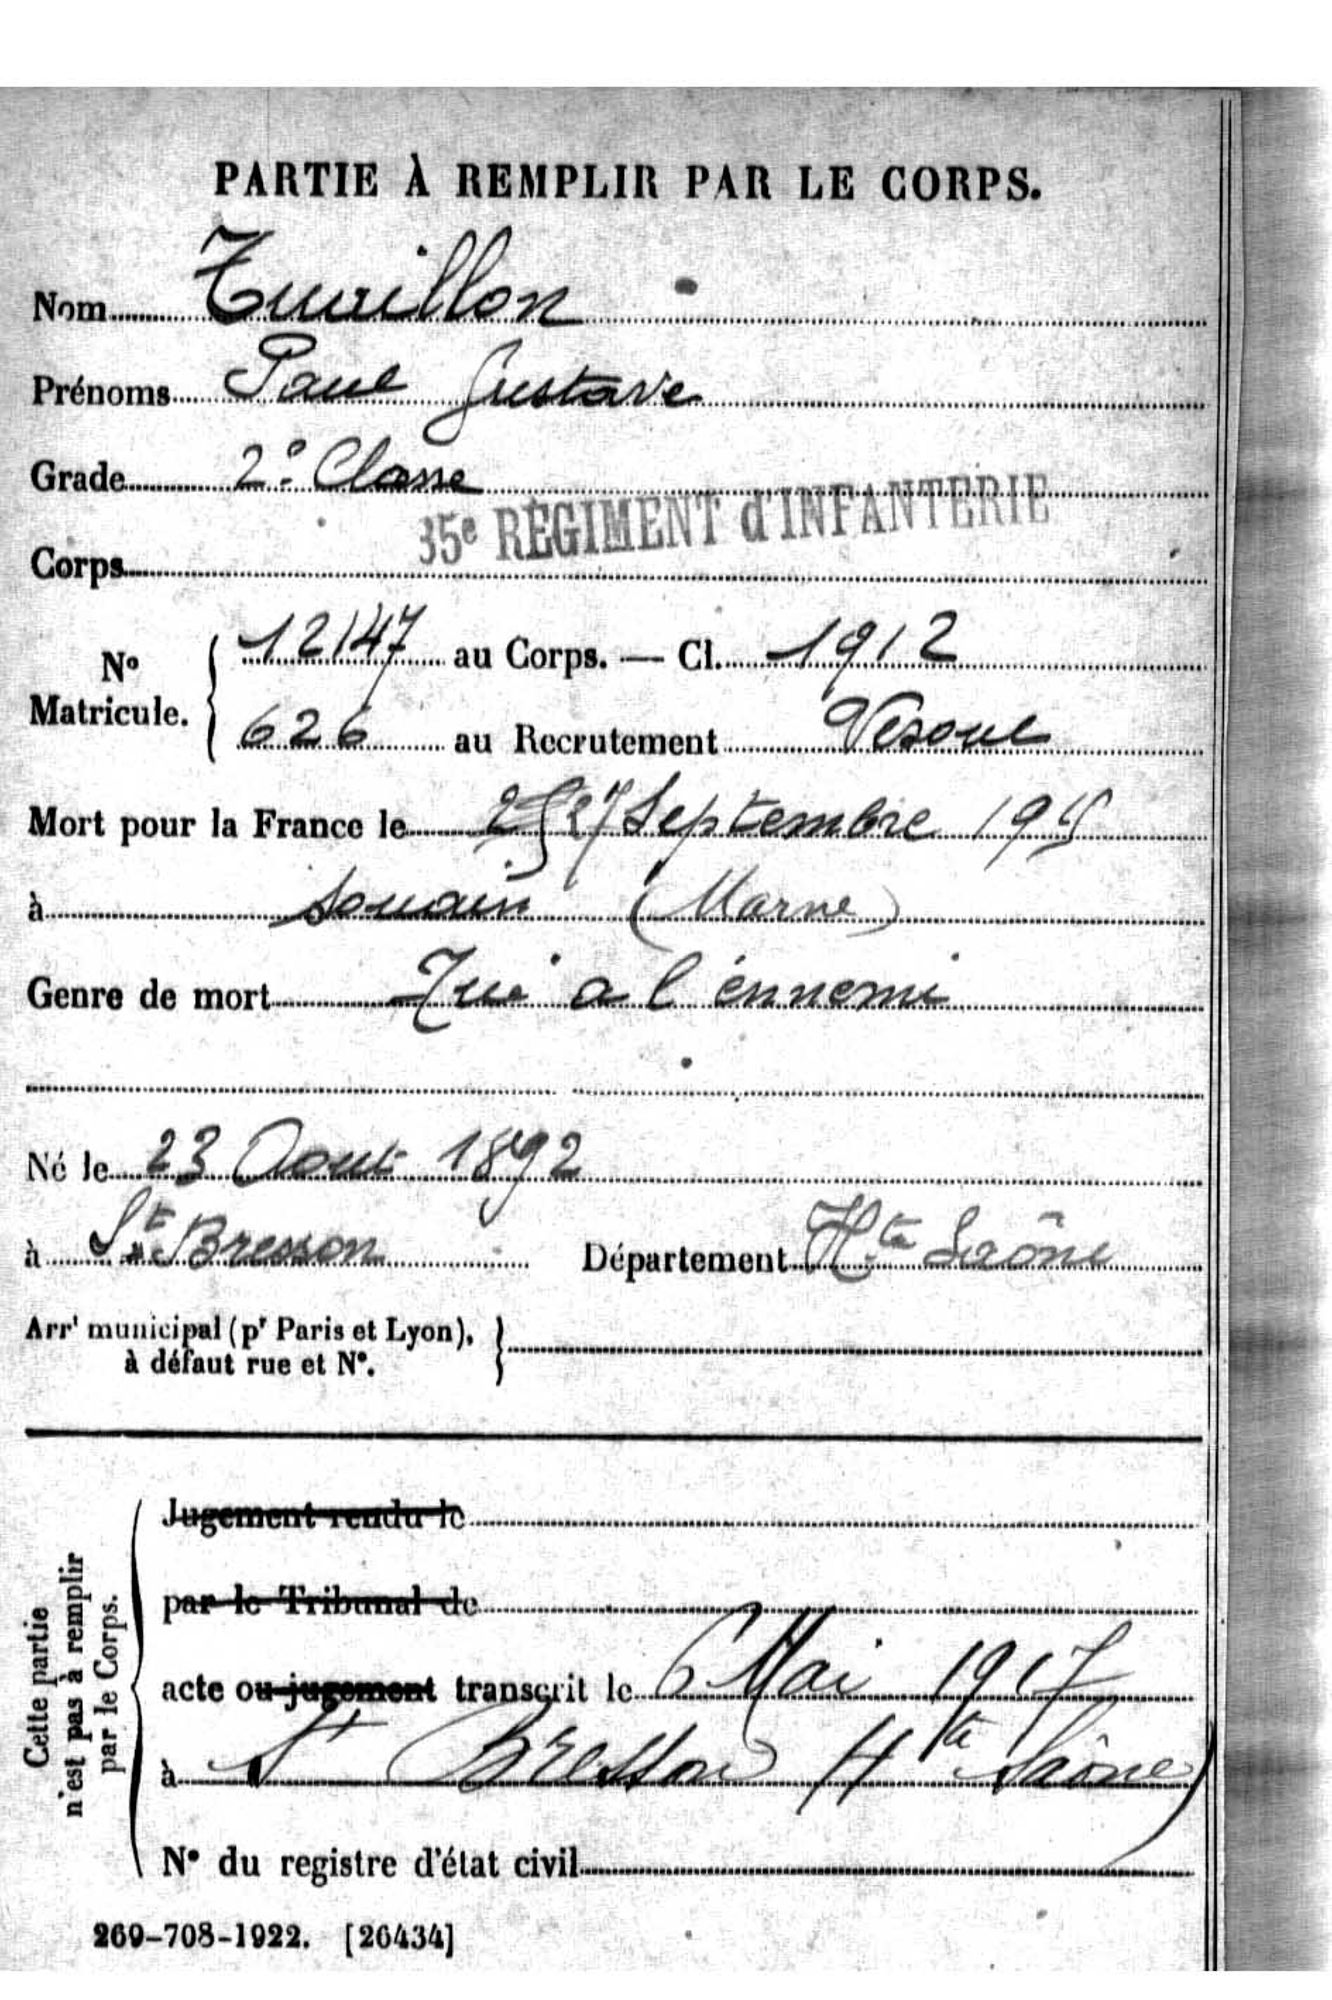 PARTIE À REMPLIR PAR LE CORPS.
Nom Tuvillon
Prénoms Paul Gustave
Grade 2e Classe
35e RÉGIMENT d'INFANTERIE
Corps
No Matricule. { 12147 au Corps. — Cl. 1912
626 au Recrutement Vesoul
Mort pour la France le 27 Septembre 1915
à Souain (Marne)
Genre de mort Tué a l'énnemi
Né le 23 Aout 1892
à St Bresson Département Hte Saône
Arrt municipal (pr Paris et Lyon),
à défaut rue et No.
Cette partie
n'est pas à remplir
par le Corps.
Jugement rendu le
par le Tribunal de
acte ou jugement transcrit le 6 Mai 1917
à St Bresson Hte Saône)
No du registre d'état civil
269-708-1922. [26434]